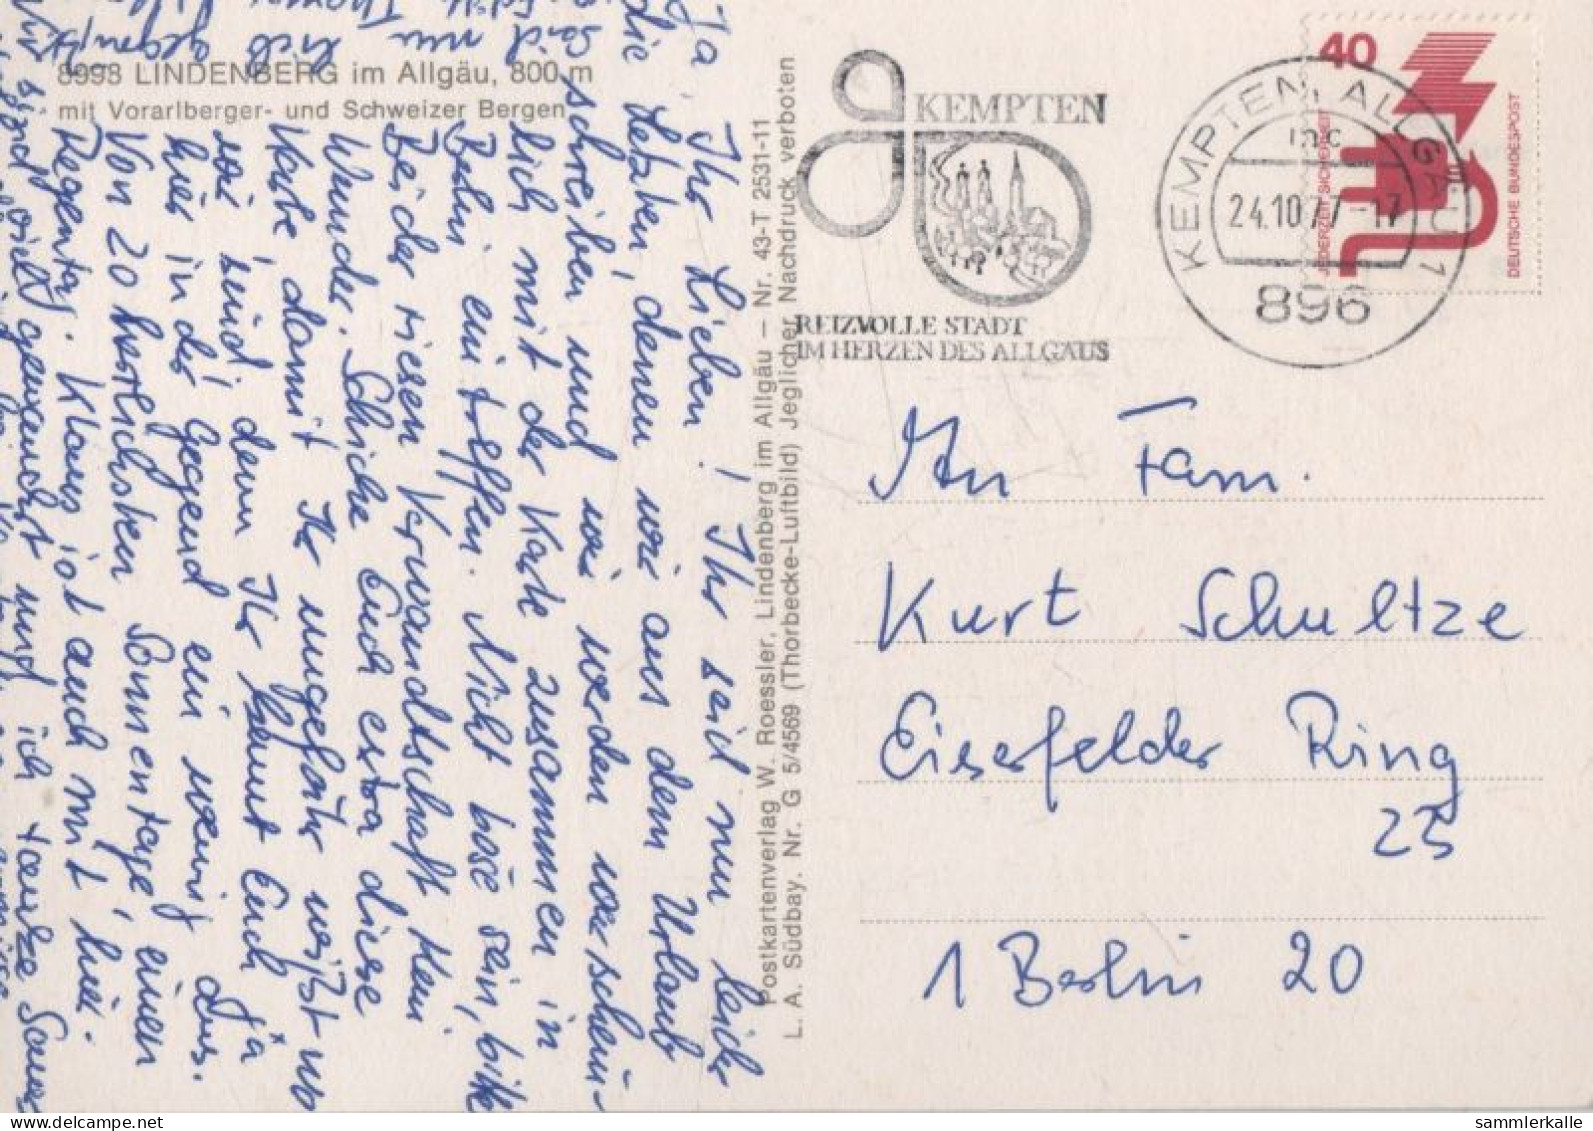 8998 LINDENBERG im Allgäu, 800 m
mit Vorarlberger- und Schweizer Bergen
Ja Ihr Lieben! Ihr seid nun leider
die letzten, denen wir aus dem Urlaub
schreiben und wir werden wahrschein-
lich mit der Karte zusammen in
Berlin eintreffen. Nicht böse sein, bitte
Bei der riesen Verwandtschaft kein
Wunder. Schicke Euch extra diese
Karte damit Ihr ungefähr wißt wo
wir sind, denn Ihr kennt Euch ja
hier in der Gegend ein wenig aus.
Von 20 herrlichsten Sonnentage, einen
Regentag. Klaus ist auch mit hier.
Wir sind viel gewandert und ich
Postkartenverlag W. Roessler, Lindenberg im Allgäu – Nr. 43-T 2531-11
L. A. Südbay. Nr. G 5/4569 (Thorbecke-Luftbild) Jeglicher Nachdruck verboten
KEMPTEN
REIZVOLLE STADT
IM HERZEN DES ALLGÄUS
KEMPTEN, ALLGÄU 1
mc
24.10.77-17
896
40
JEDERZEIT SICHERHEIT
DEUTSCHE BUNDESPOST
An Fam.
Kurt Schultze
Eiserfelder Ring
23
1 Berlin 20
sammlerkalle